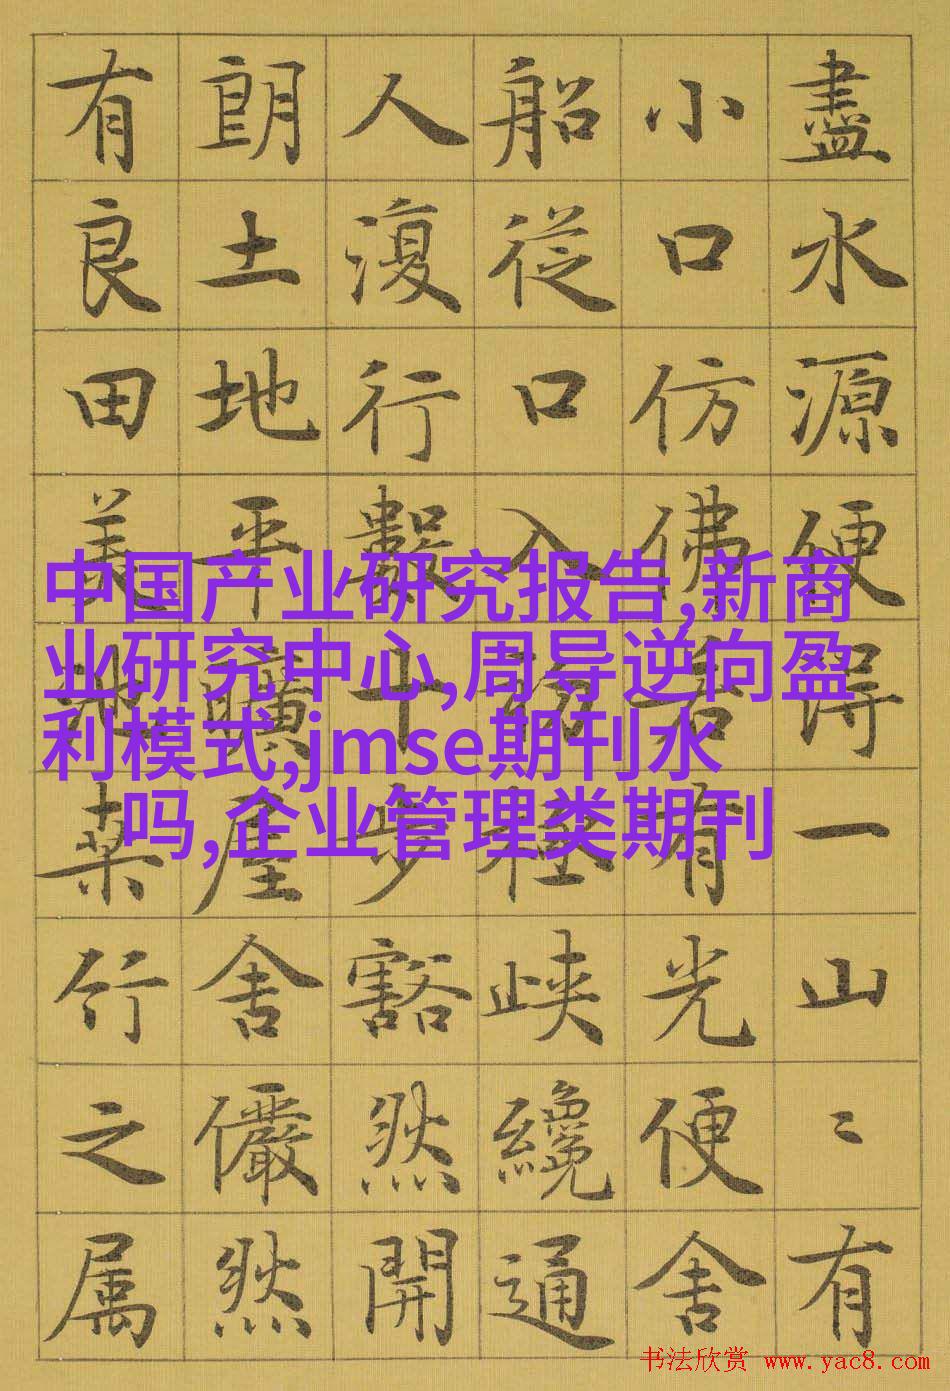 盡水源便得一山〻有
小口仿佛若有光便舍
船從口入初極峽纔通
人復行數十步豁然開
朗土地平曠屋舍儼然
有良田美池桑竹之属
中国产业研究报告,新商
业研究中心,周导逆向盈
利模式,jmse期刊水
吗,企业管理类期刊
书法欣赏 www.yac8.com